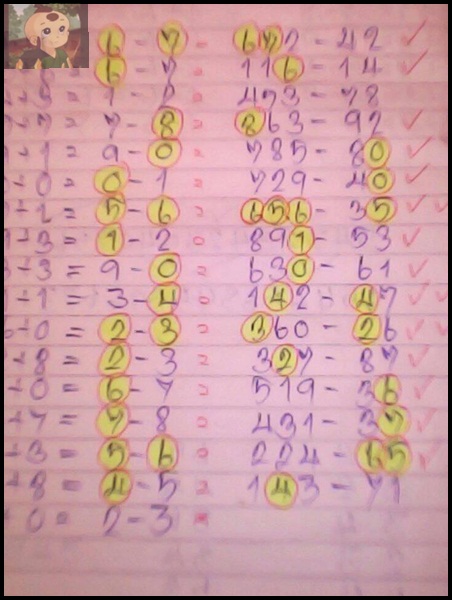 6 - 7 = 672 - 42 ✓
6 - 7 = 116 - 14 ✓
1 - 2 = 473 - 78
7 - 8 = 863 - 92 ✓
1 = 9 - 0 = 785 - 80 ✓
0 = 0 - 1 729 - 40 ✓
= 5 - 6 = 656 - 35 ✓✓
+3 = 1 - 2 = 891 - 53 ✓
+3 = 9 - 0 = 630 - 61 ✓
+1 = 3 - 4 = 142 - 47 ✓✓
+0 = 2 - 3 = 360 - 26 ✓✓
+8 = 2 - 3 = 327 - 87 ✓
+0 = 6 - 7 = 519 - 36 ✓
+7 = 7 - 8 = 431 - 37 ✓
+3 = 5 - 6 = 224 - 65 ✓
+8 = 4 - 5 = 143 - 71
0 = 2 - 3 =